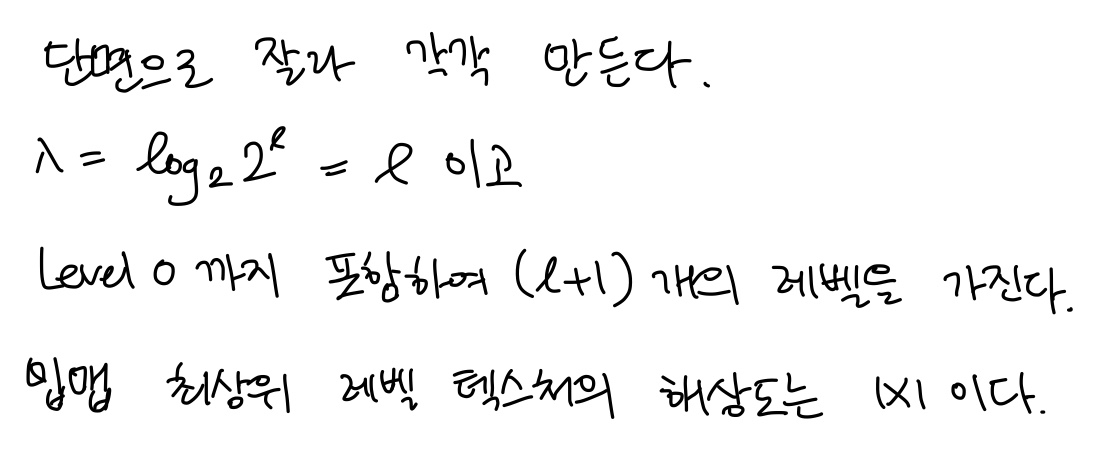 단면으로 잘라 각각 만든다.
λ = log₂ 2^ℓ = ℓ 이고
Level 0 까지 포함하여 (ℓ+1) 개의 레벨을 가진다.
밉맵 최상위 레벨 텍스처의 해상도는 1X1 이다.